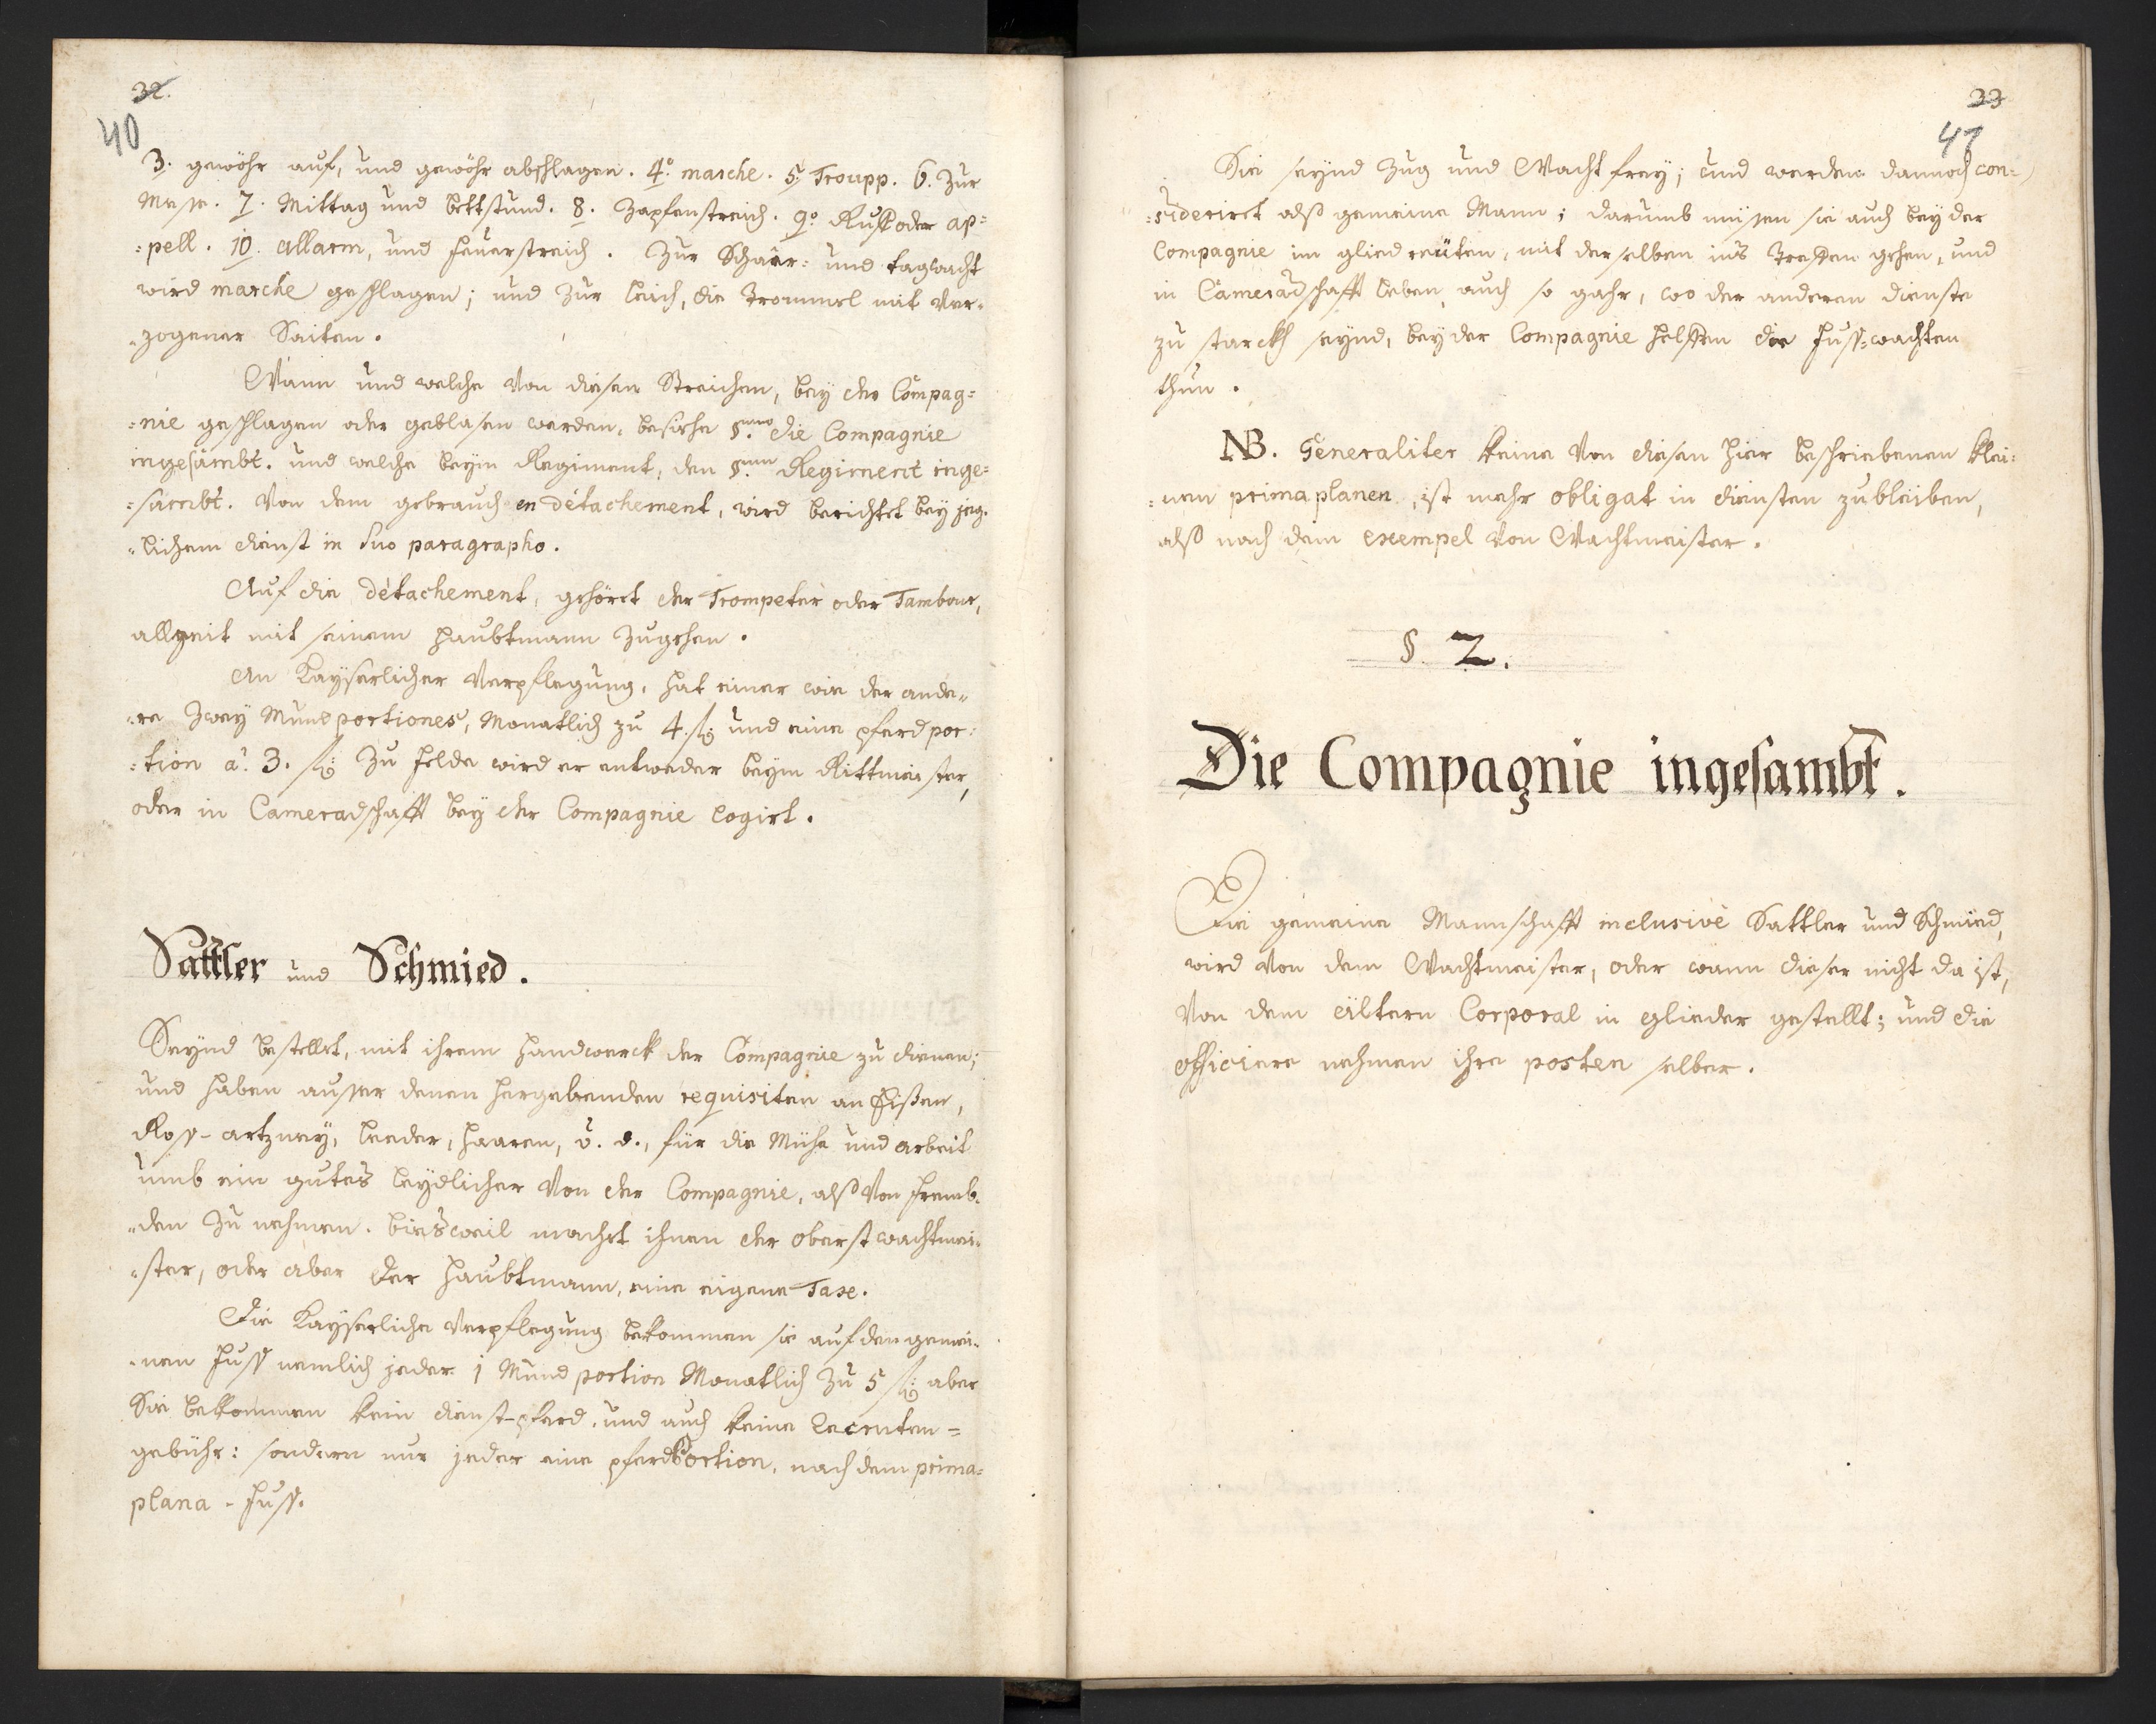 32.
40
3. gewöhr auf, und gewöhr abschlagen. 4º marche. 5. Troupp. 6. Zur
Messe. 7. Mittag und bettstund. 8. Zapfenstreich. 9º Ruff oder ap=
=pell. 10. allarm, und feuerstreich. Zur Schaar= und tagwacht
wird marche geschlagen; und zur leich, die Trommel mit ver=
=zogener Saiten.
Wann und welche von diesen Streichen, bey der Compag=
=nie geschlagen oder geblasen werden, besiehe §um die Compagnie
ingesambt. und welche beym Regiment, den §um Regiment inge=
=sambt. Von dem gebrauch en détachement, wird berichtet bey jeg=
=lichem dienst in suo paragrapho.
Auf die détachement, gehöret der Trompeter oder Tambour,
allzeit mit seinem haubtmann zugehen.
An Kayserlicher Verpflegung, hat einer wie der ande=
=re Zwey Mundportiones, Monatlich zu 4. fl; und eine pferd por=
=tion à 3. fl; Zu felde wird er entweder beym Rittmeister,
oder in Cameradschafft bey der Compagnie logirt.
Sattler und Schmied.
Seynd bestellet, mit ihrem handwerck der Compagnie zu dienen;
und haben ausser denen hergebenden requisiten an Eisen,
Ross-artzney, leeder, haaren, für die Mühe und arbeit
umb ein gutes leydlicher von der Compagnie, alß von fremb=
=den zu nehmen. bisweil machet ihnen der oberstwachtmei=
=ster, oder aber der haubtmann, eine eigene Taxe.
Die Kayserliche Verpflegung bekommen sie auf den gemei=
=nen fuss nemlich jeder 1 Mund portion Monatlich zu 5 fl; aber
Sie bekommen kein dienst-pferd, und auch keine recruten=
gebühr: sondern nur jeder eine pferdportion, nach dem prima=
plana - fuss.
33
41
Sie seynd Zug und Wacht frey; und werden dannoch con=
=sideriret alß gemeine Mann; darumb müssen sie auch bey der
Compagnie im glied reüten, mit derselben ins Treffen gehen, und
in Cameradschafft leben, auch so gahr, wo der anderen dienste
zu starckh seynd, bey der Compagnie helffen die fuss=wachten
thun.
NB. Generaliter keine von diesen hier beschriebenen klei=
=nen primaplanen, ist mehr obligat in diensten zubleiben,
alß nach dem exempel von Wachtmeister.
§ 2.
Die Compagnie ingesambt.
Die gemeine Mannschafft inclusivè Sattler und Schmied,
wird von dem Wachtmeister, oder wann dieser nicht da ist,
von dem ältern Corporal in glieder gestellt; und die
officiere nehmen ihre posten selber.